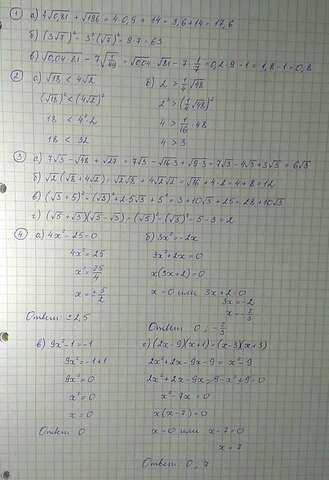 ① а) 4√0,81 + √196 = 4·0,9 + 14 = 3,6+14 = 17,6
б) (3√7)² = 3²(√7)² = 9·7 = 63
в) √0,04·81 - 7√1/49 = √0,04·√81 - 7·1/7 = 0,2·9 - 1 = 1,8-1 = 0,8
② а) √18 < 4√2
(√18)² < (4√2)²
18 < 4²·2
18 < 32
в) 2 > 1/4 √48
2² > (1/4 √48)²
4 > 1/16 · 48
4 > 3
③ а) 7√3 - √48 + √27 = 7√3 - √16·3 + √9·3 = 7√3 - 4√3 + 3√3 = 6√3
б) √2 (√8 + 4√2) = √2·√8 + 4√2·√2 = √16 + 4·2 = 4+8 = 12
в) (√3 + 5)² = (√3)² + 2·5√3 + 5² = 3 + 10√3 + 25 = 28 + 10√3
г) (√5 + √3)(√5 - √3) = (√5)² - (√3)² = 5 - 3 = 2
④ а) 4x² - 25 = 0
4x² = 25
x² = 25/4
x = ± 5/2
Ответ: ±2,5
б) 3x² = -2x
3x² + 2x = 0
x(3x+2) = 0
x = 0 или 3x + 2 = 0
3x = -2
x = -2/3
Ответ: 0, -2/3
в) 9x² - 1 = -1
9x² = -1+1
9x² = 0
x² = 0
x = 0
Ответ: 0
г) (2x-9)(x+1) = (x-3)(x+3)
2x² + 2x - 9x - 9 = x² - 9
2x² + 2x - 9x - 9 - x² + 9 = 0
x² - 7x = 0
x(x-7) = 0
x = 0 или x - 7 = 0
x = 7
Ответ: 0, 7